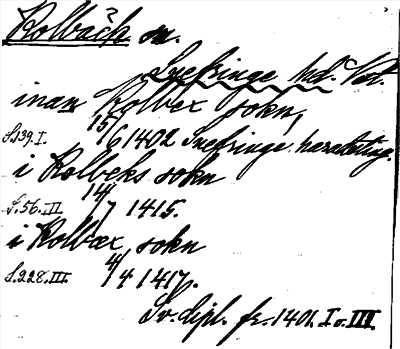 Kolbäck sn.
Snefringe hd. Vstm.
inan Kolbex sokn,
S. 139. I. 15/6 1402 Snefringe häradsting.
i Kolbeks sokn
S. 56. II. 14/7 1415.
i Kolbæx sokn
S. 228. III. 4/4 1417.
Sv. dipl. fr. 1401. I o. III.